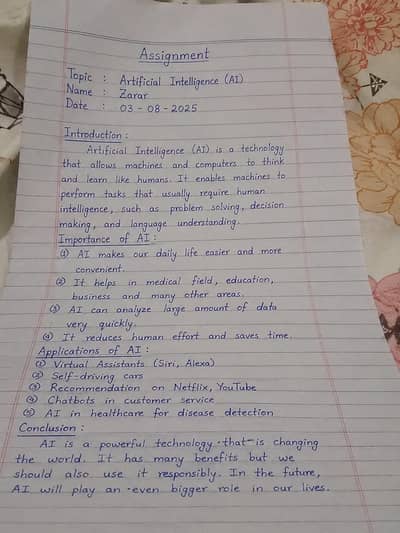 Assignment
Topic : Artificial Intelligence (AI)
Name : Zarar
Date : 03 - 08 - 2025
Introduction :
Artificial Intelligence (AI) is a technology
that allows machines and computers to think
and learn like humans. It enables machines to
perform tasks that usually require human
intelligence, such as problem solving, decision
making, and language understanding.
Importance of AI :
① AI makes our daily life easier and more
convenient.
② It helps in medical field, education,
business and many other areas.
③ AI can analyze large amount of data
very quickly.
④ It reduces human effort and saves time.
Applications of AI :
① Virtual Assistants (Siri, Alexa)
② Self-driving cars
③ Recommendation on Netflix, YouTube
④ Chatbots in customer service
⑤ AI in healthcare for disease detection
Conclusion :
AI is a powerful technology that is changing
the world. It has many benefits but we
should also use it responsibly. In the future,
AI will play an even bigger role in our lives.